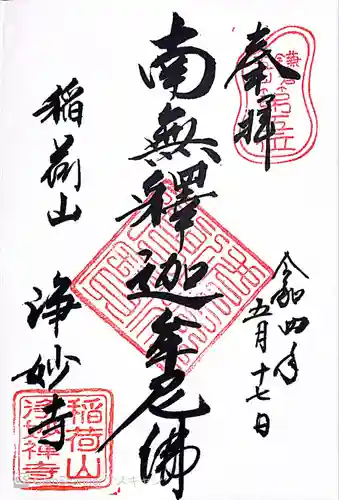 奉拝
鎌倉
第五位
令和四年
五月十七日
南無釋迦牟尼佛
稲荷山
浄妙寺
稲荷山
浄妙禅寺